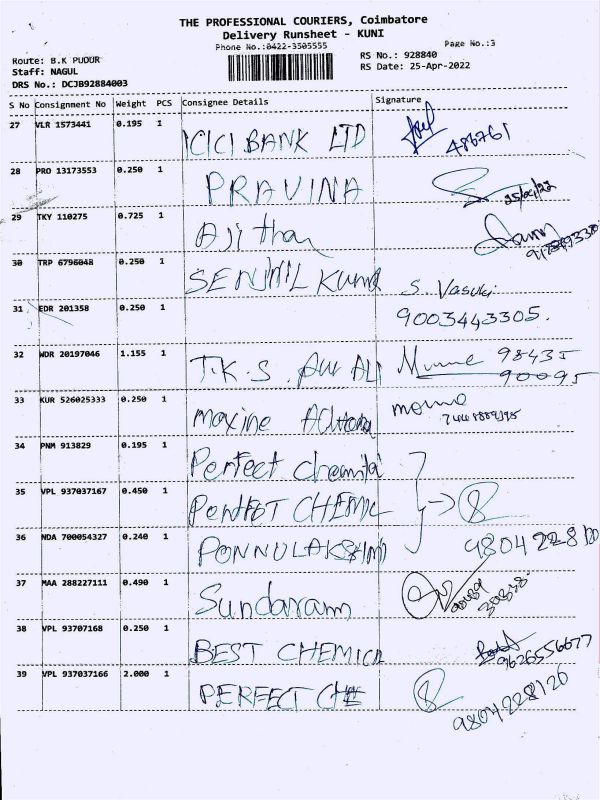 THE PROFESSIONAL COURIERS, Coimbatore
Delivery Runsheet - KUNI
Phone No.:0422-3505555 Page No.:3
Route: B.K PUDUR RS No.: 928840
Staff: NAGUL RS Date: 25-Apr-2022
DRS No.: DCJB92884003
S No Consignment No Weight PCS Consignee Details Signature
27 VLR 1573441 0.195 1 ICICI BANK LTD 486761
28 PRO 13173553 0.250 1 PRAVINA 25/04/22
29 TKY 110275 0.725 1 Ajithar
30 TRP 6796048 0.250 1 SENJHIL Kumar S. Vasuki
31 EDR 201358 0.250 1 9003443305.
32 WDR 20197046 1.155 1 T.K.S. ALI 98435
90095
33 KUR 526025333 0.250 1 maxine
34 PNM 913829 0.195 1 Perfect chemical
35 VPL 937037167 0.450 1 PERFECT CHEMIC
36 NDA 700054327 0.240 1 PONNULAKSHMI 9804228120
37 MAA 288227111 0.490 1 Sundaram
38 VPL 93707168 0.250 1 BEST CHEMICL 9626556677
39 VPL 937037166 2.000 1 PERFECT CHE 9804228120